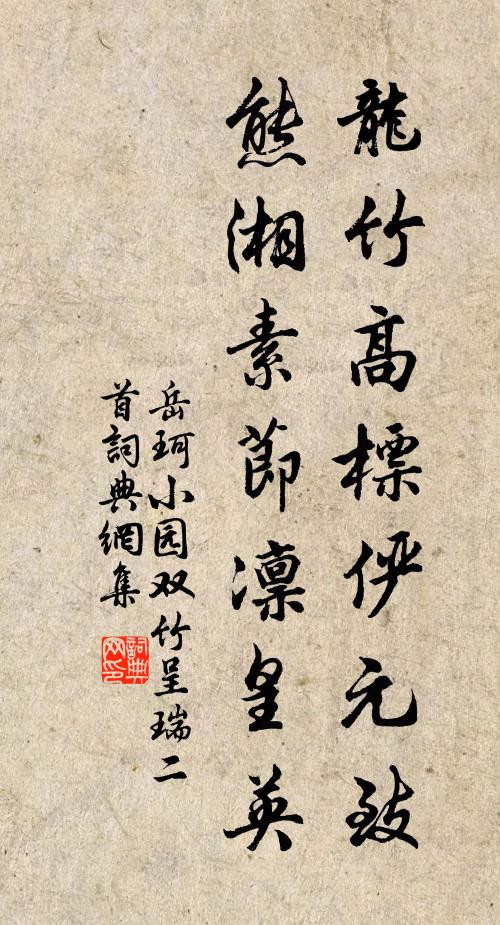 龍竹高標伻元致
熊湘素節凛皇英
岳珂小园双竹呈瑞二
首詞典網集
詞典网印